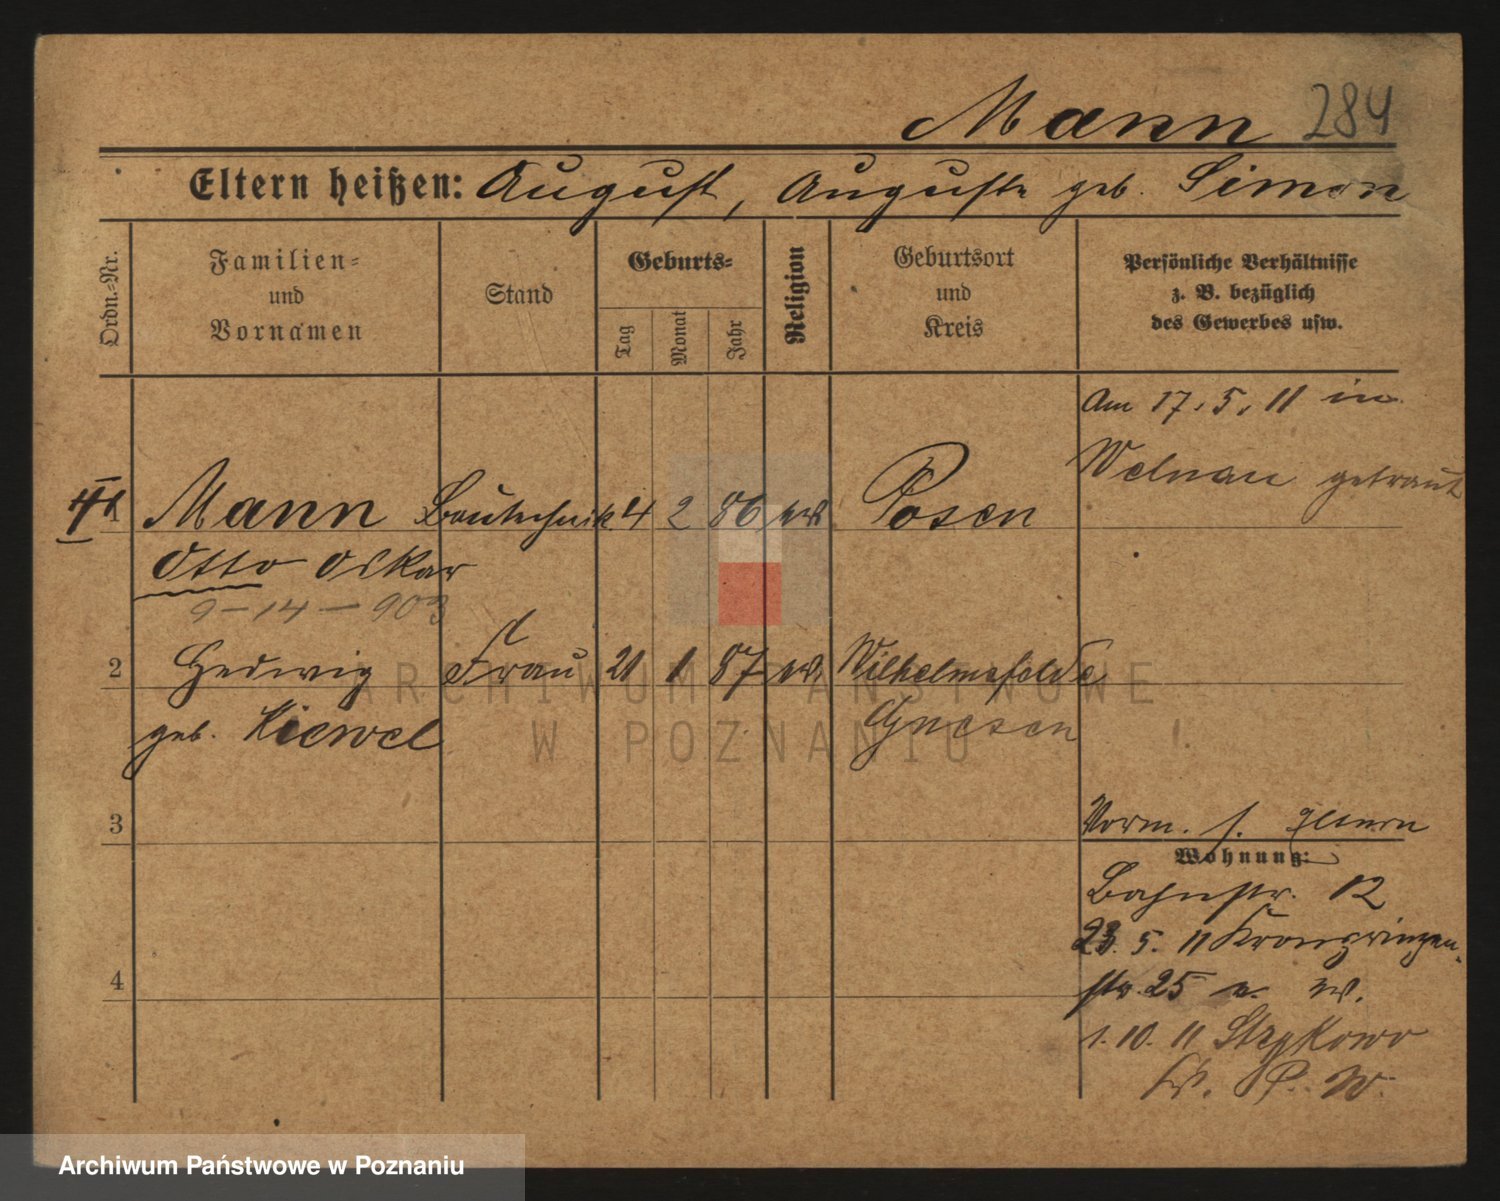 Mann 284
Eltern heißen: August, Auguste geb. Simon
Ordn.-Nr.
Familien-
und
Vornamen
Stand
Geburts-
Tag
Monat
Jahr
Religion
Geburtsort
und
Kreis
Persönliche Verhältnisse
z. B. bezüglich
des Gewerbes usw.
Am 17. 5. 11 in
Welnau getraut
1 Mann Bautechnik. 4 2 86 ev. Posen
Otto Oskar
9-14-903
2 Hedwig Frau 21 1 87 ev. Wilhelmsfelde
geb. Kiewel Gnesen
3
Vorm. s. Eltern
Wohnung:
Bahnstr. 12
23. 5. 11 Kronprinzen-
4
str. 25 a. W.
1. 10. 11 Strykowo
Kr. P. W.
ARCHIWUM PAŃSTWOWE
W POZNANIU
Archiwum Państwowe w Poznaniu